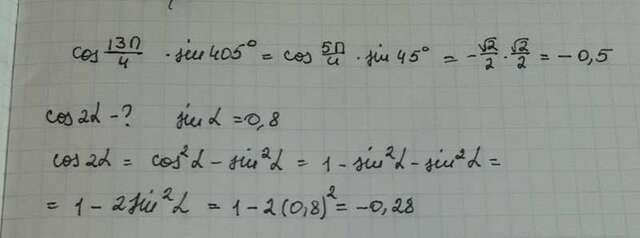 cos 13π/4 · sin 405° = cos 5π/4 · sin 45° = -√2/2 · √2/2 = -0,5
cos 2α - ? sin α = 0,8
cos 2α = cos²α - sin²α = 1 - sin²α - sin²α =
= 1 - 2 sin²α = 1 - 2(0,8)² = -0,28